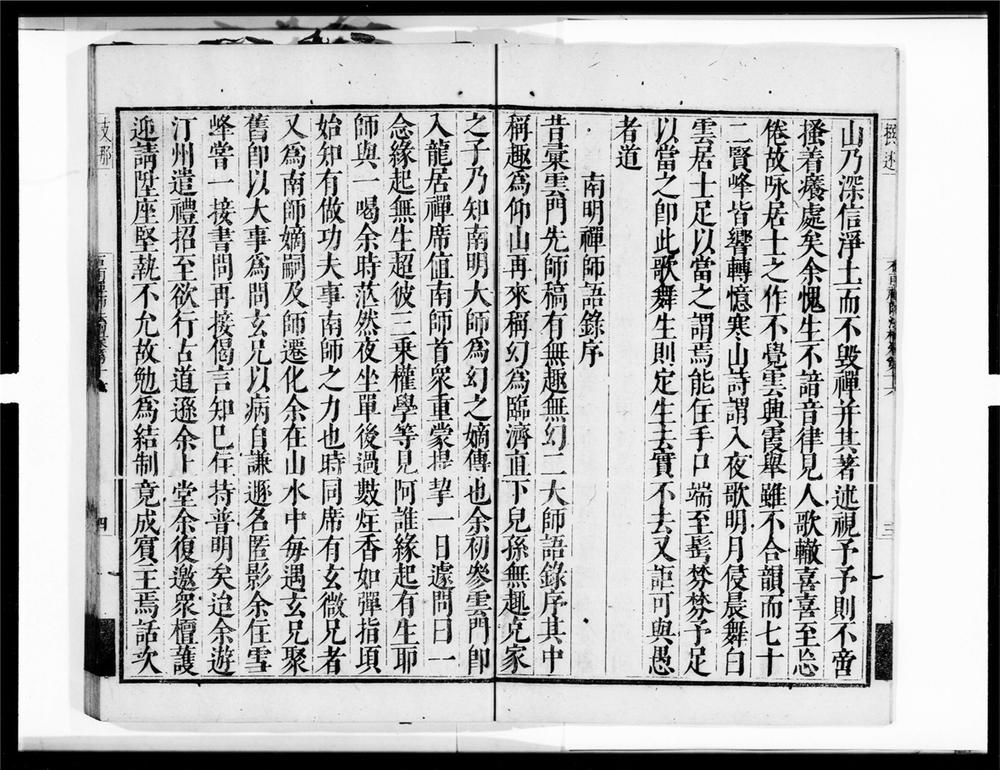 撰述
山乃深信淨土而不毀禪并其著述視予予則不啻
搔着癢處矣余愧生不諳音律見人歌輙喜喜至忘
倦故咏居士之作不覺雲興霞舉雖不合韻而七十
二賢峰皆響轉憶寒山詩謂入夜歌明月侵晨舞白
雲居士足以當之謂焉能住手口端至髩髼髼予足
以當之即此歌舞生則定生去實不去又詎可與愚
者道
南明禪師語錄序
昔彙雲門先師稿有無趣無幻二大師語錄序其中
稱趣爲仰山再來稱幻爲臨濟直下兒孫無趣克家
之子乃知南明大師爲幻之嫡傳也余初參雲門即
入龍居禪席值南師首衆重蒙提挈一日遽問曰一
念緣起無生超彼三乗權學等見阿誰緣起有生耶
師與一喝余時茫然夜坐單後過數炷香如彈指項
始知有做功夫事南師之力也時同席有玄微兄者
又爲南師嫡嗣及師遷化余在山水中每遇玄兄聚
舊即以大事爲問玄兄以病自謙遯名匿影余住雪
峰嘗一接書問再接偈言知已住持普明矣迨余遊
汀州遣禮招至欲行古道遜余上堂余復邀衆檀護
迎請陞座堅執不允故勉爲結制竟成賓主焉話次
支那
三
四